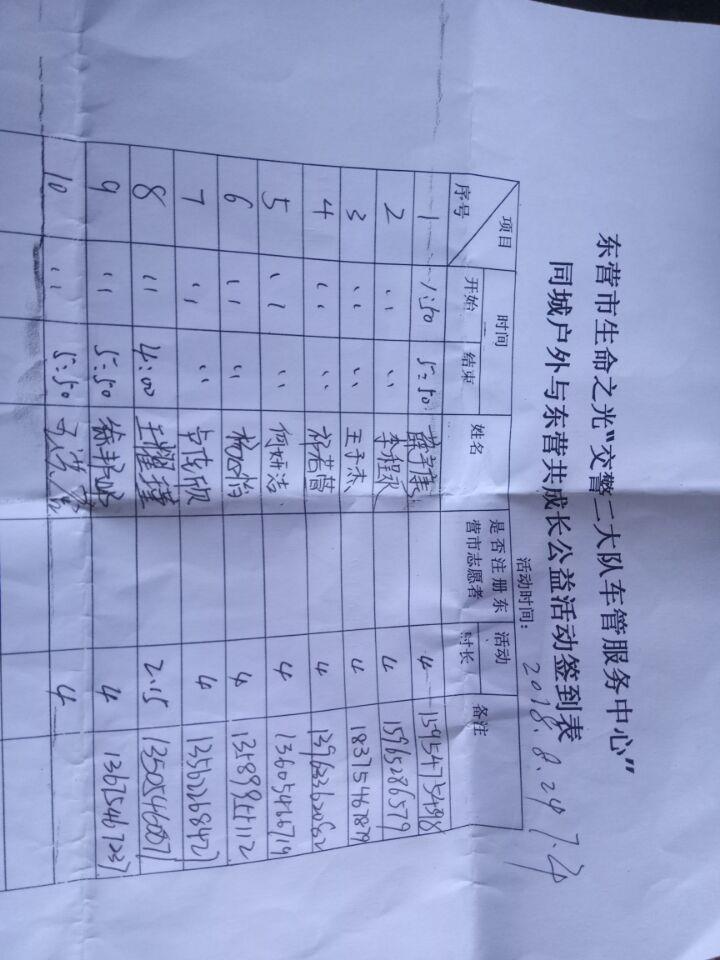 东营市生命之光"交警二大队车管服务中心"
同城户外与东营共成长公益活动签到表
活动时间: 2018.8.24 下午
项目 序号 时间 开始 结束 姓名 是否注册东营市志愿者 活动时长 备注
1 1:50 5:50 4 15954735498
2 〃 〃 李程永 4 15965286579
3 〃 〃 王子杰 4 18375467879
4 〃 〃 祁若萱 4
5 〃 〃 何妍洁 4 13605466719
6 〃 〃 4
7 〃 〃 4 13562268427
8 〃 4:00 王耀瑾 2.15 13505460071
9 〃 5:50 4 13675467237
10 〃 5:50 4